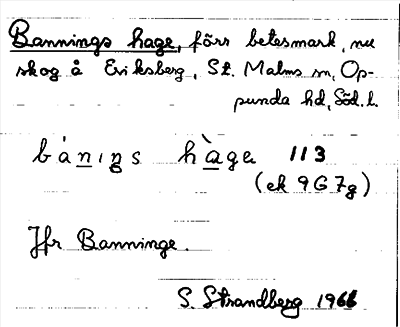 Bannings hage, förr betesmark, nu
skog å Eriksberg, St. Malms sn, Op-
punda hd, Söd. l.
bánıŋs hàga 113
(ek 9G7g)
Jfr Banninge.
S. Strandberg 1966